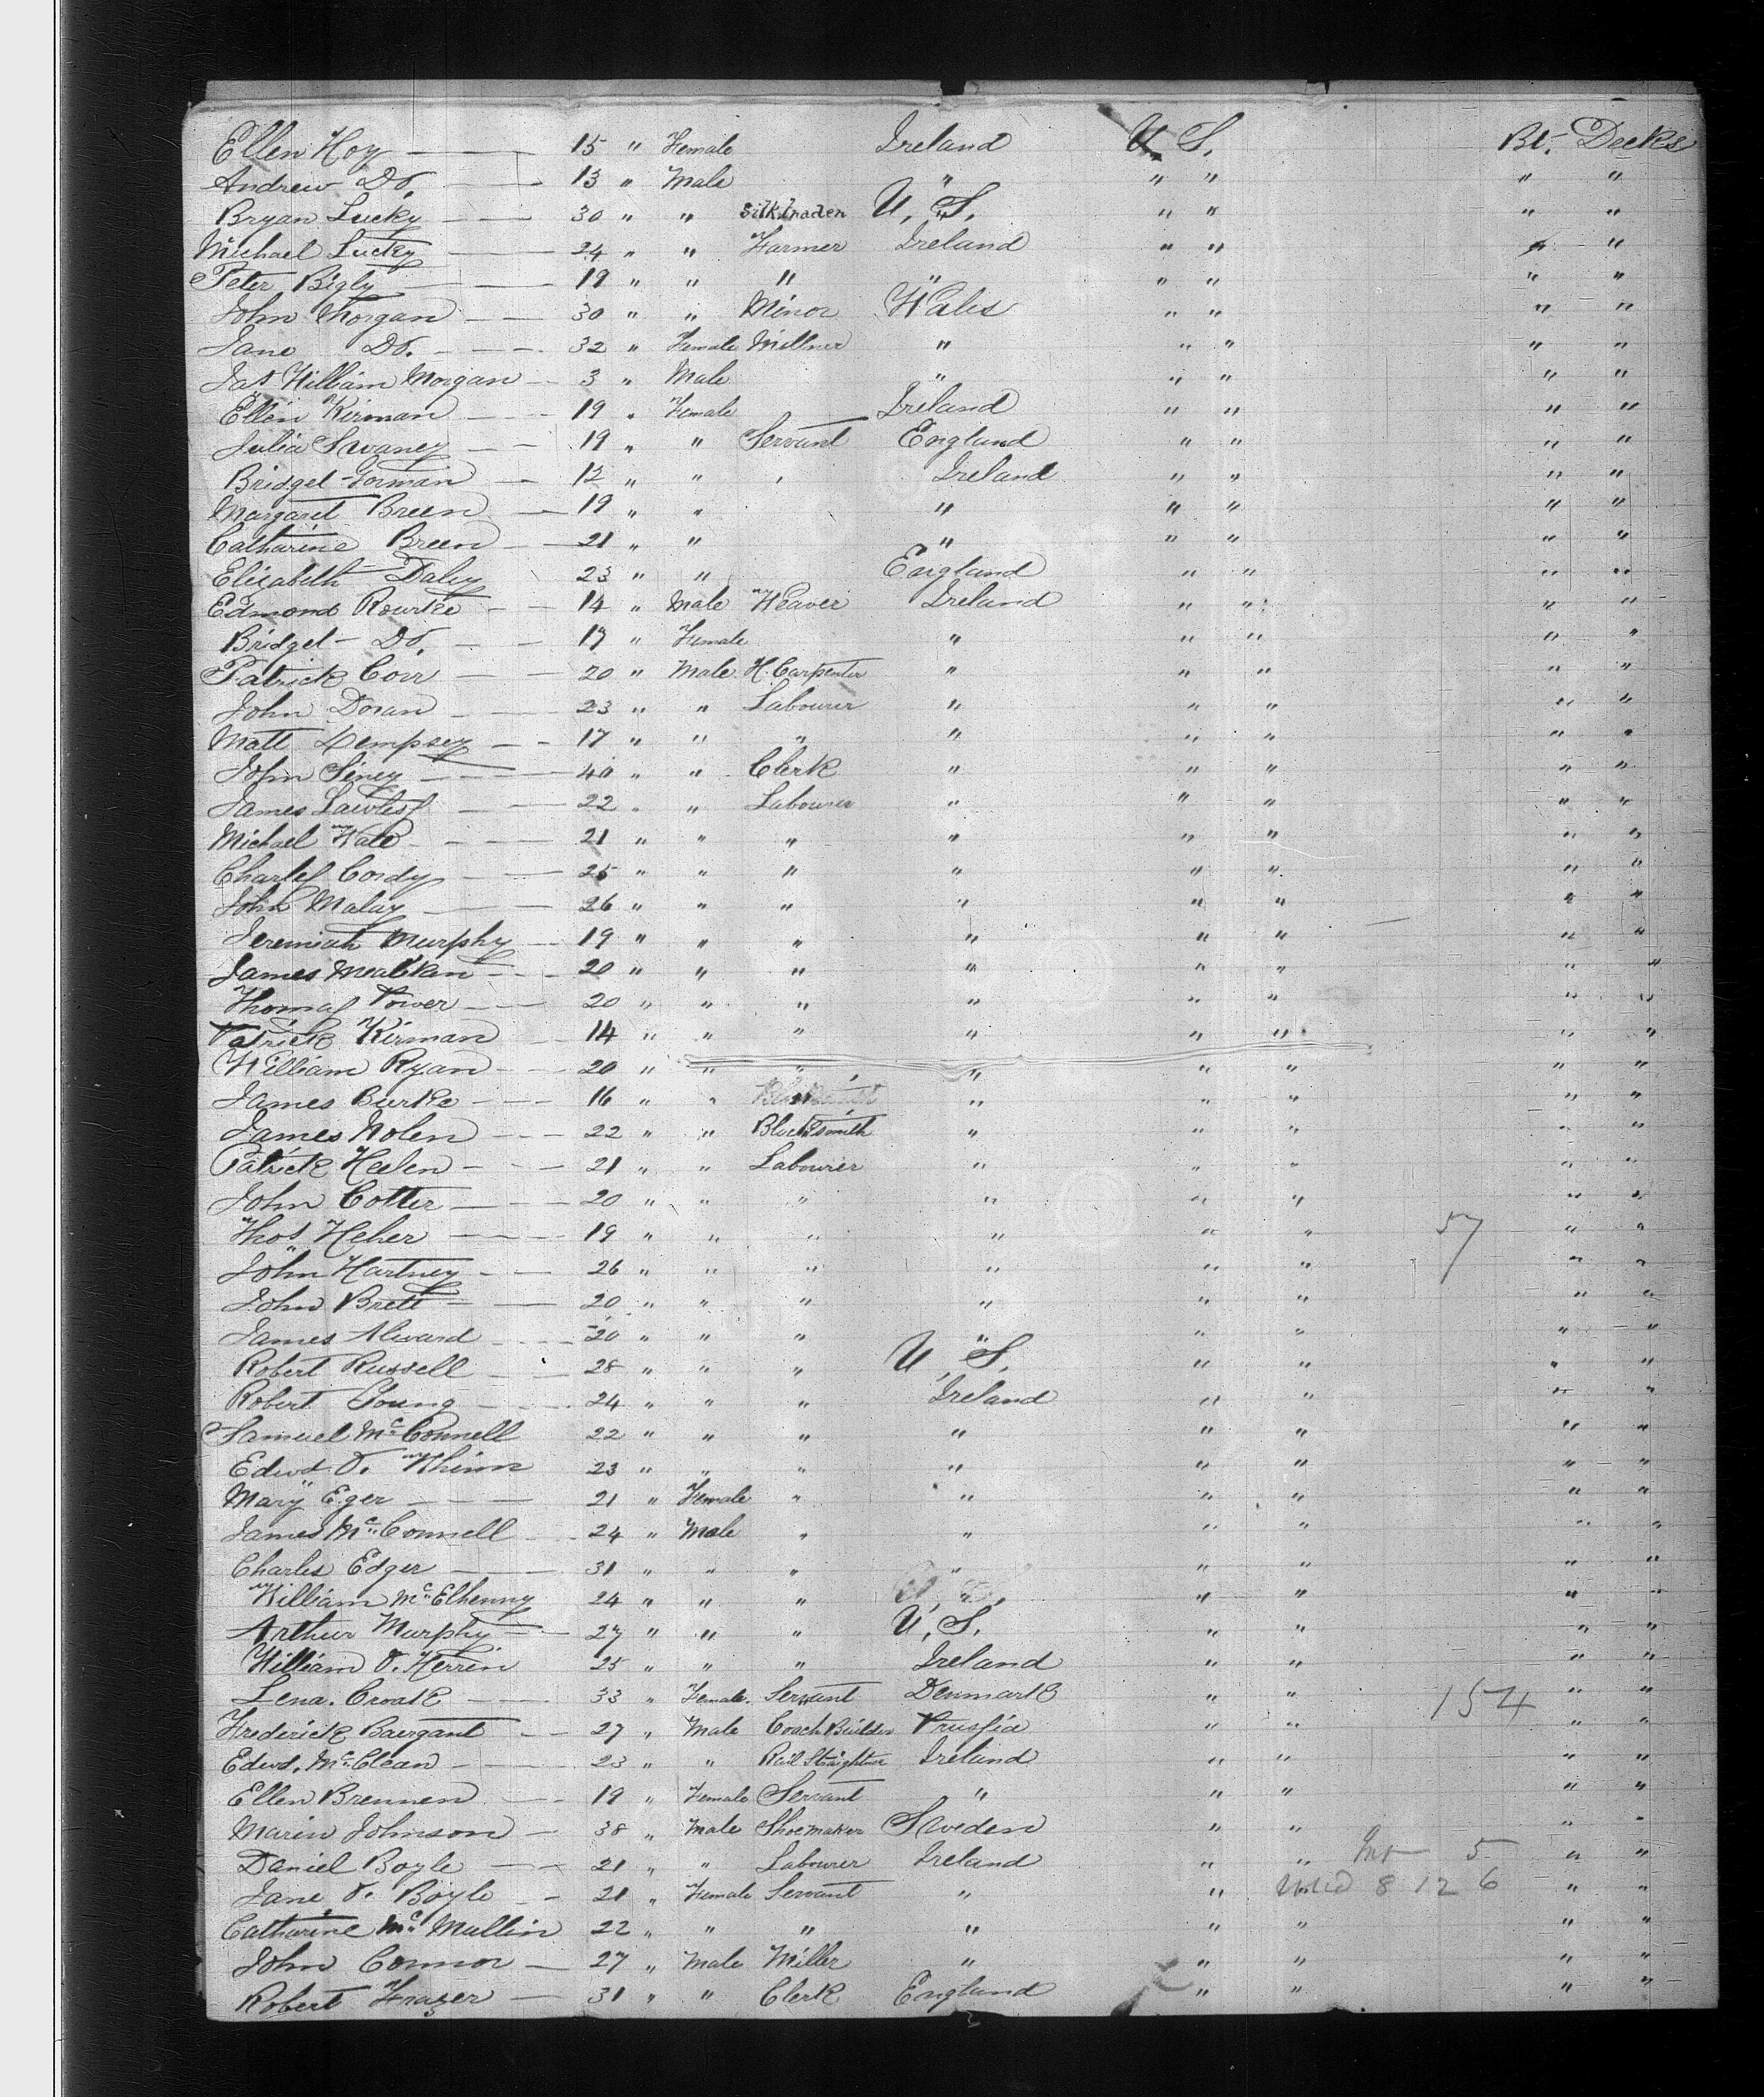 Ellen Hoy 15 " Female Ireland U. S. Bt. Decks
Andrew Do. 13 " Male " " " " "
Bryan Lucky 30 " " Silk U. S. " " " "
Michael Lucky 24 " " Farmer Ireland " " " "
Peter Bigly 19 " " " " " " " "
John Morgan 30 " " Minor Wales " " " "
Jane Do. 32 " Female Millner " " " " "
Jas William Morgan 3 " Male " " " " "
Ellen Kirman 19 " Female Ireland " " " "
Julia Swaney 19 " " Servant England " " " "
Bridget Gorman 12 " " Ireland " " " "
Margaret Breen 19 " " " " " " "
Catharine Breen 21 " " " " " " "
Elizabeth Daley 23 " " England " " " "
Edmond Rourke 14 " Male Weaver Ireland " " " "
Bridget Do. 17 " Female " " " " "
Patrick Corr 20 " Male H. Carpenter " " " " "
John Doran 23 " " Labourer " " " " "
Matt Dempsey 17 " " " " " " " "
John Siney 40 " " Clerk " " " " "
James Lawless 22 " " Labourer " " " " "
Michael Wale 21 " " " " " " " "
Charles Cordy 25 " " " " " " " "
John Malay 26 " " " " " " " "
Jeremiah Murphy 19 " " " " " " " "
James 20 " " " " " " " "
Thomas Power 20 " " " " " " " "
Patrick Kirman 14 " " " " " " " "
William Ryan 20 " " " " " " " "
James Burke 16 " " " " " " "
James Nolen 22 " " Blacksmith " " " " "
Patrick Heelen 21 " " Labourer " " " " "
John Cotter 20 " " " " " " " "
Thos Heher 19 " " " " " " 57 " "
John Hartney 26 " " " " " " " "
John Brett 20 " " " " " " " "
James Alward 20 " " " " " " " "
Robert Russell 28 " " " U. S. " " " "
Robert Young 24 " " " Ireland " " " "
Samuel McConnell 22 " " " " " " " "
Edwd O. Whinn 23 " " " " " " " "
Mary Eger 21 " Female " " " " " "
James McConnell 24 " Male " " " " " "
Charles Edger 31 " " " " " " " "
William McElhenny 24 " " " " " " "
Arthur Murphy 27 " " " U. S. " " " "
William O. Herrin 25 " " " Ireland " " " "
Lena. Croak 33 " Female. Servant Denmark " " 154 " "
Frederick Baergant 27 " Male Coach Builder Prussia " " " "
Edwd. McClean 23 " " Rail Straightner Ireland " " " "
Ellen Brennen 19 " Female Servant " " " " "
Marin Johnson 38 " Male Shoemaker Sweden " " " "
Daniel Boyle 21 " " Labourer Ireland " " 5 " "
Jane O. Boyle 21 " Female Servant " " 8 12 6 " "
Catharine McMullin 22 " " " " " " " "
John Connor 27 " Male Miller " " " " "
Robert Frazer 31 " " Clerk England " " " "